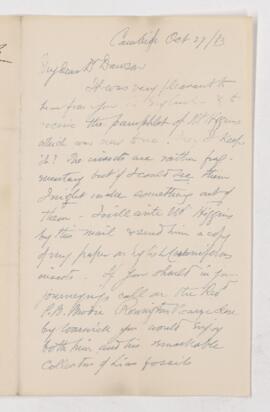 Cambridge Oct 27/83
My dear Dr Dawson
It was very pleasant to
hear from you in England & to
receive the pamphlet of Mr Higgins
which was new to me. May I keep
it? The insects are rather frag-
mentary but if I could see them
I might make something out of
them – I will write Mr Higgins
by this mail & send him a copy
of my paper on Carboniferous
insects. – If you should in your
journeyings call on the Rev
P. B. Brodie Rowington Vicarage close
by Warwick you would enjoy
both him and his remarkable
collection of Lias fossils